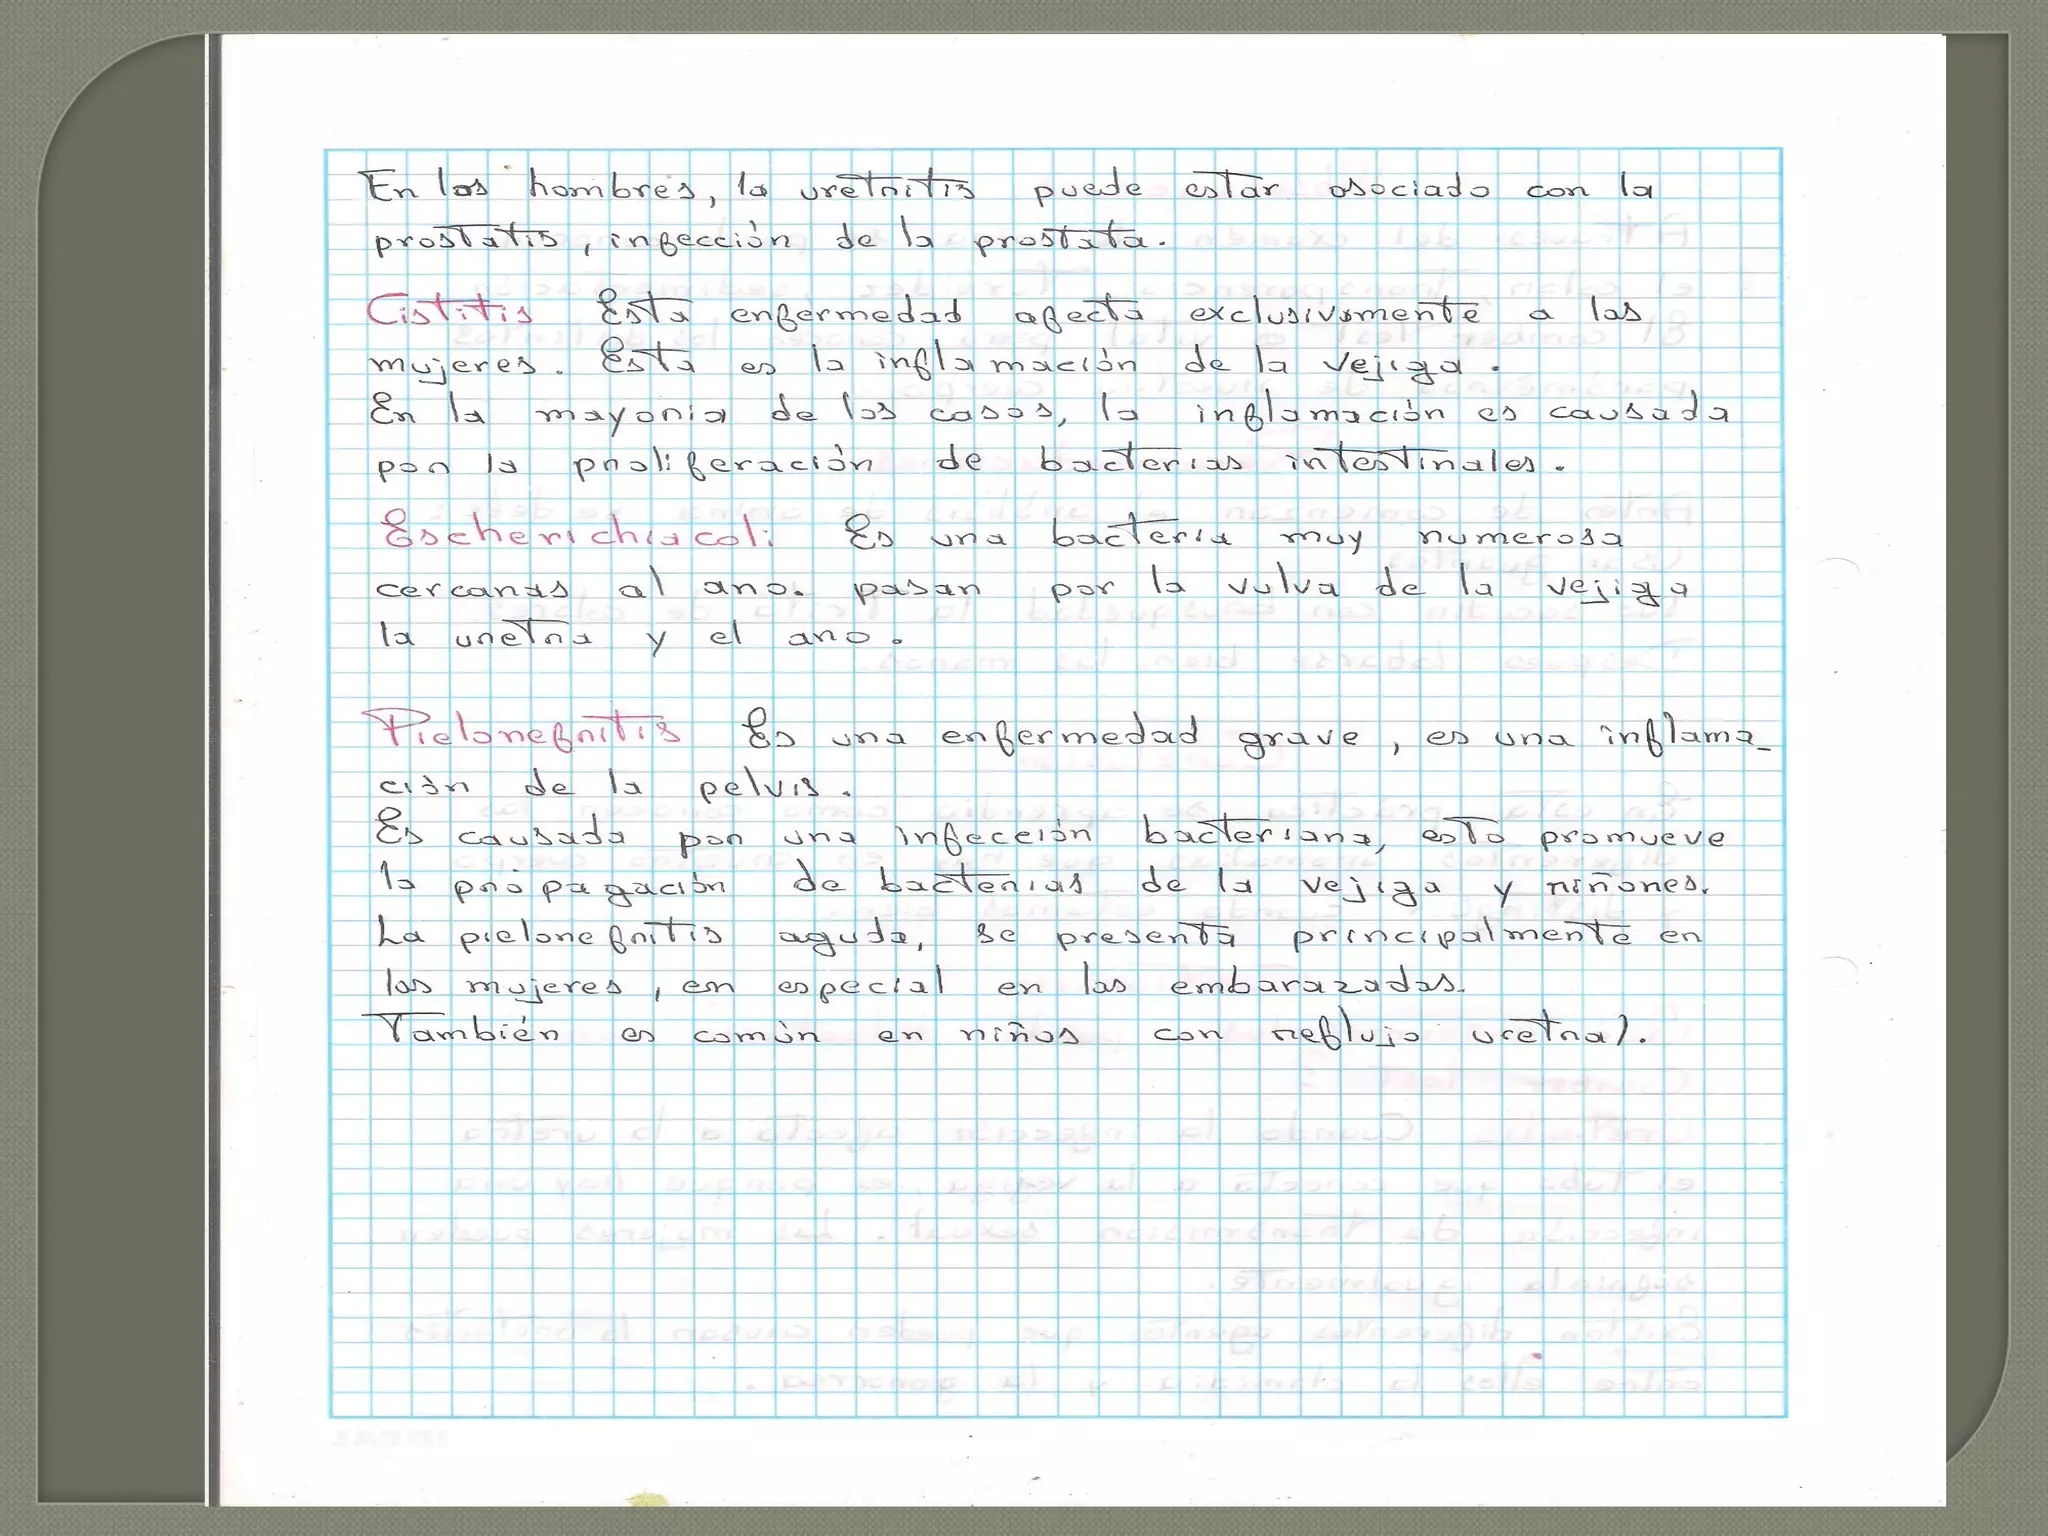 En los hombres, la uretritis puede estar asociado con la
prostatis, infección de la prostata.
Cistitis Esta enfermedad afecta exclusivamente a las
mujeres. Esta es la inflamación de la vejiga.
En la mayoria de los casos, la inflamación es causada
por la proliferación de bacterias intestinales.
Escherichiacoli Es una bacteria muy numerosa
cercanas al ano. pasan por la vulva de la vejiga
la uretra y el ano.
Pielonefritis Es una enfermedad grave, es una inflama_
ción de la pelvis.
Es causada por una infección bacteriana, esto promueve
la propagación de bacterias de la vejiga y riñones.
La pielonefritis aguda, se presenta principalmente en
las mujeres, en especial en las embarazadas.
También es común en niños con reflujo uretral.